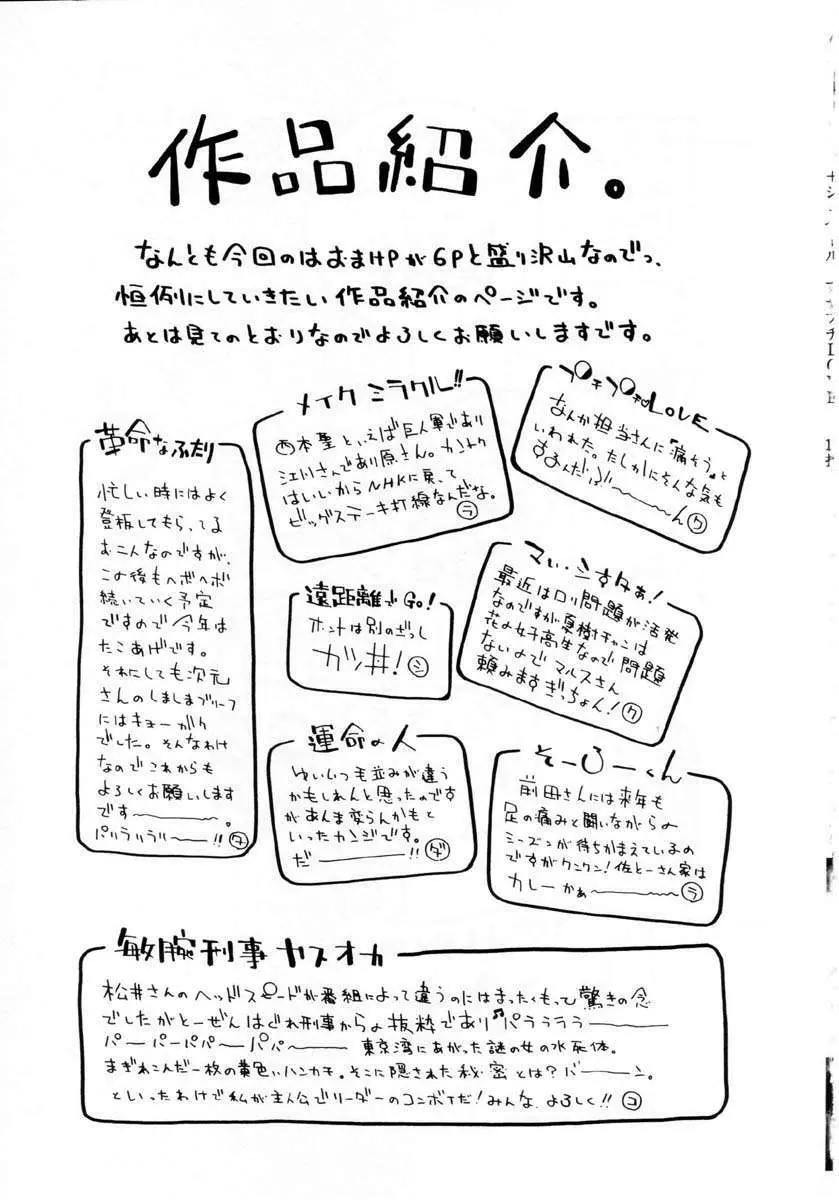 作品紹介。
なんとも今回のはおまけPが6Pと盛り沢山なのでっ、
恒例にしていきたい作品紹介のページです。
あとは見てのとおりなのでよろしくお願いしますです。
革命なふたり
忙しい時にはよく
登板してもらってる
おこんなのですが、
この後もヘボヘボ
続いていく予定
ですので今年は
たこあげです。
それにしても次元
さんのしましまブリーフ
にはキョーがく
でした。そんなわけ
なのでこれからも
よろしくお願いします
です――――。
パリラリラリ――――!! タ
メイクミラクル!!
西本聖といえば巨人軍であり
江川さんであり原さん。カントク
はいいからNHKに戻って
ビッグステーキ打線なんだな。
ラ
LOVE
なんか担当さんに「痛そう」と
いわれた。たしかにそんな気も
するんだぶ〜〜〜ん ク
遠距離でGo!
ホントは別のざっし
ガッ井! シ
まい・しすたぁ!
最近はロリ問題が活発
なのですが夏樹チャンは
花の女子高生なので問題
ないのでマルスさん
頼みますぎっちょん! ク
運命の人
ゆいいつ毛並みが違う
かもしれんと思ったのです
があんま変らんかもと
いったカンジです。
だ――――!! ダ
そーろーくん
前田さんには来年も
足の痛みと闘いながらの
シーズンが待ちかまえているの
ですがクンクン!佐とーさん家は
カレーかぁ〜〜〜〜 ラ
敏腕刑事ヤスオカ
松井さんのヘッドスピードが番組によって違うのにはまったくもって驚きの念
でしたがとーぜんはぐれ刑事からの抜粋であり♬パララララ――――
パーパーパパーパパ―〜〜〜 東京湾にあがった謎の女の水死体。
まぎれこんだ一枚の黄色いハンカチ。そこに隠された秘密とは?バーーン。
といったわけで私が主人公でリーダーのコンボイだ!みんな、よろしく!! コ